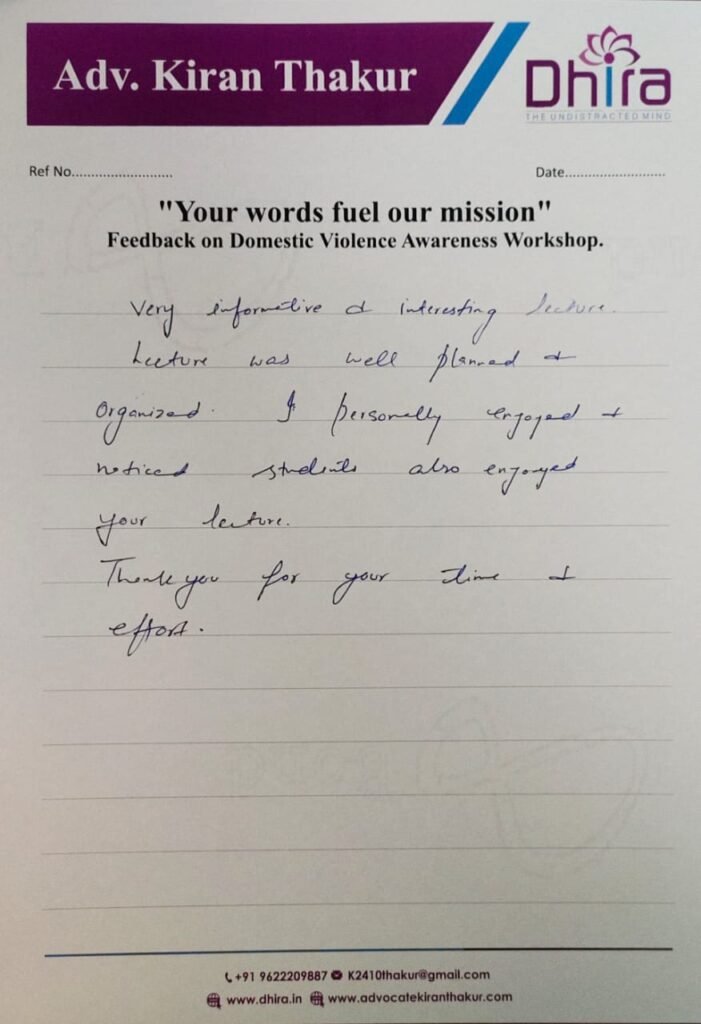 Adv. Kiran Thakur
Dhira
THE UNDISTRACTED MIND
Ref No.........................
Date.........................
"Your words fuel our mission"
Feedback on Domestic Violence Awareness Workshop.
Very informative & interesting lecture.
Lecture was well planned &
Organized. I personally engoyed &
noticed students also engoyed
your lecture.
Thank you for your time &
effort.
+91 9622209887 K2410thakur@gmail.com
www.dhira.in www.advocatekiranthakur.com